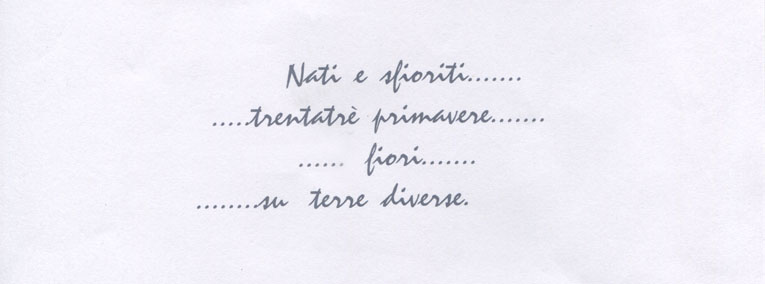 Nati e sfioriti.......
.....trentatrè primavere.......
...... fiori.......
........su terre diverse.